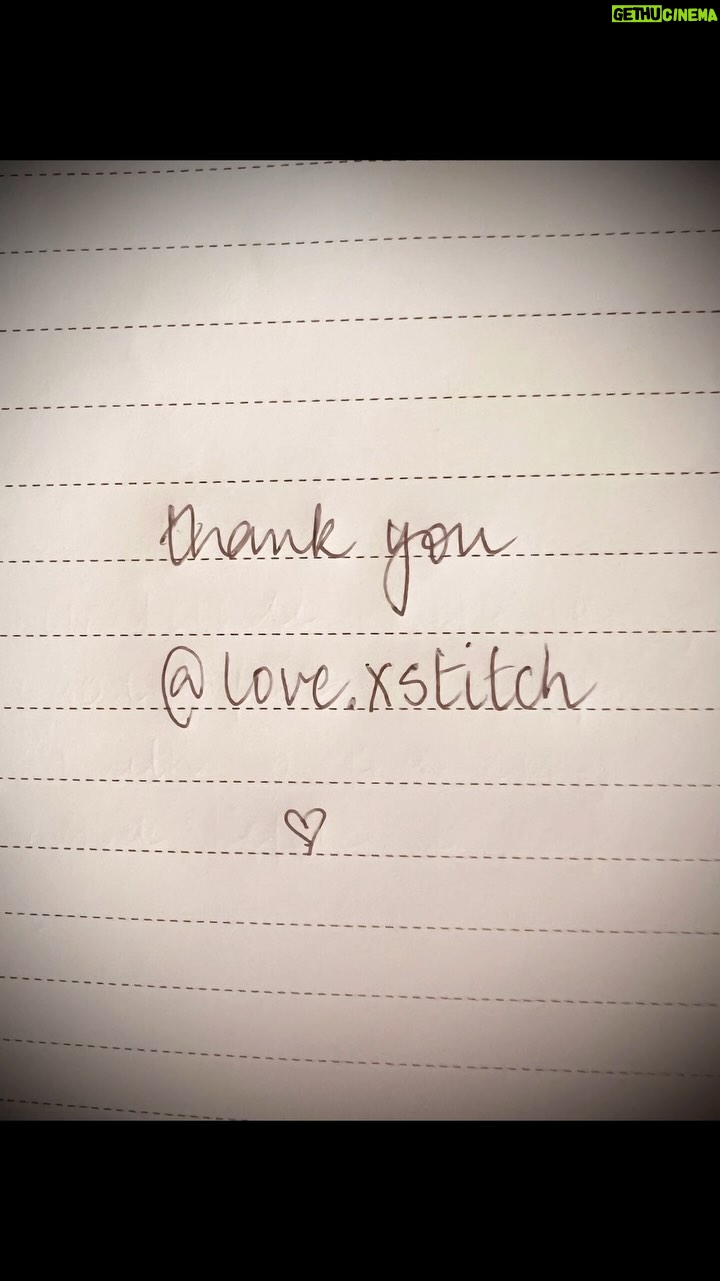 GETHUCINEMA
thank you
@love.xstitch